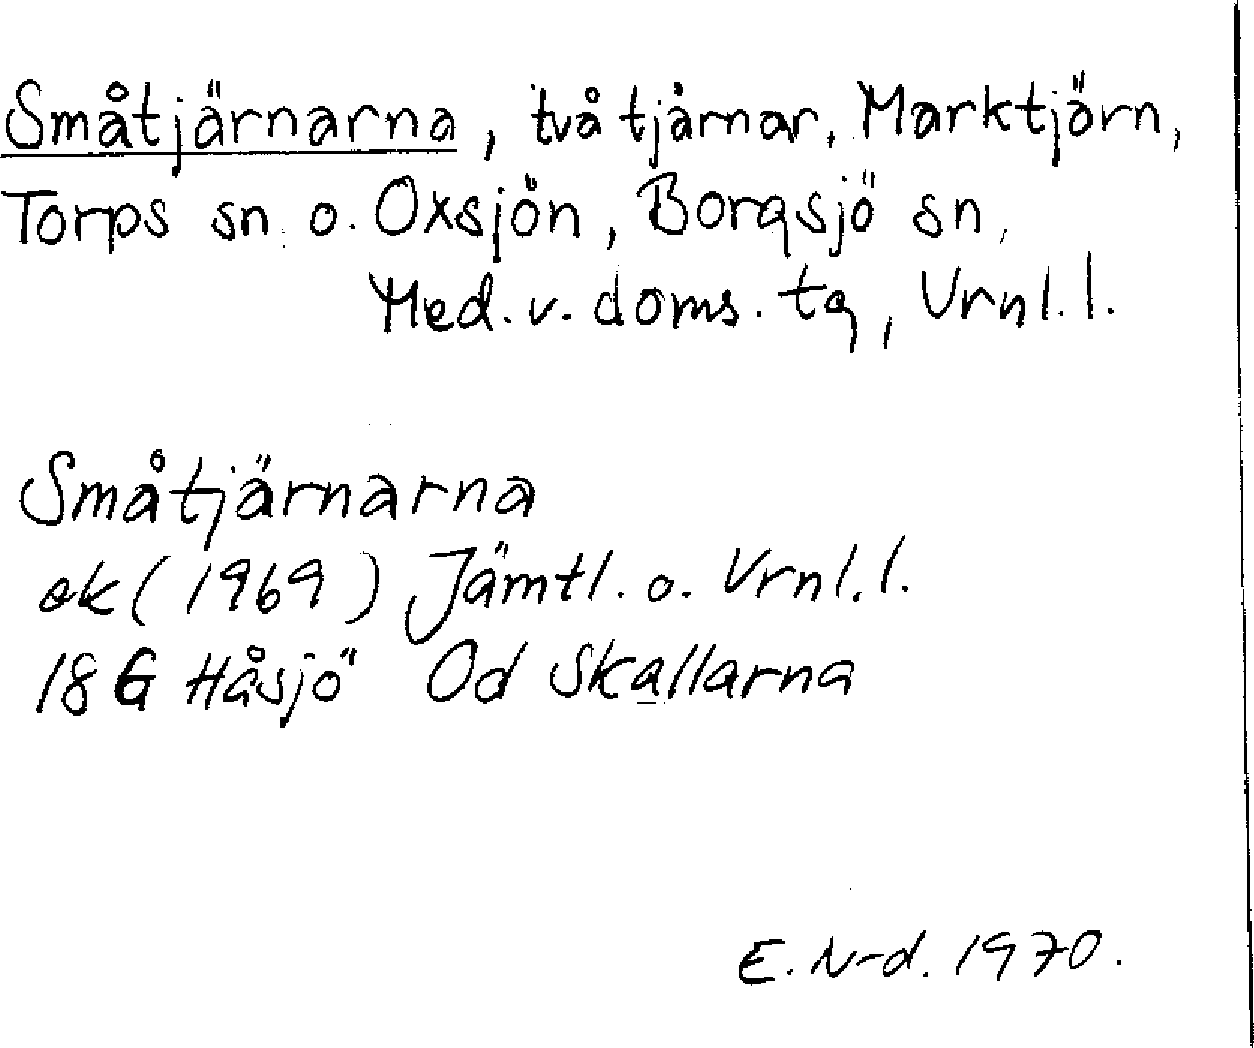 Småtjärnarna, två tjärnar, Marktjärn,
Torps sn. o. Oxsjön, Borgsjö sn,
Med. v. doms. tg, Vrnl. l.
Småtjärnarna
ek (1969) Jämtl. o. Vrnl. l.
18 G Håsjö Od Skallarna
E. N-d. 1970.